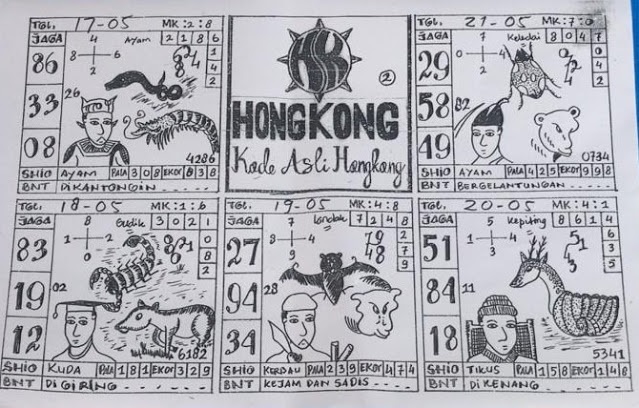 TGL. 17-05 MK:2:8
JAGA 4 Ayam 2 1 8 6
86
8 2
6
33
26
08
4286
SHIO AYAM PALA 3 0 8 EKOR 8 3 8
BNT DIKANTONGIN . . . . .
HK
2
HONGKONG
Kode Asli Hongkong
TGL. 21-05 MK:7:0
JAGA 7 Keledai 8 0 4 7
29
0 4
2
58
82
49
0734
SHIO AYAM PALA 4 2 5 EKOR 9 9 8
BNT BERGELANTUNGAN . . . .
TGL. 18-05 MK:1:6
JAGA 8 3 0 2 1
83
1 6
2
19
02
12
6182
SHIO KUDA PALA 1 8 1 EKOR 3 2 9
BNT DIGIRING . . . . .
TGL. 19-05 MK:4:8
JAGA 7 Landak 7 2 4 8
27
8 4
9
94
28
34
SHIO KERBAU PALA 2 3 9 EKOR 4 7 4
BNT KEJAM DAN SADIS . . . .
TGL. 20-05 MK:4:1
JAGA 5 Kepiting 8 6 1 4
51
1 4
3
84
11
18
5341
SHIO TIKUS PALA 1 5 8 EKOR 1 4 8
BNT DIKENANG . . . . .